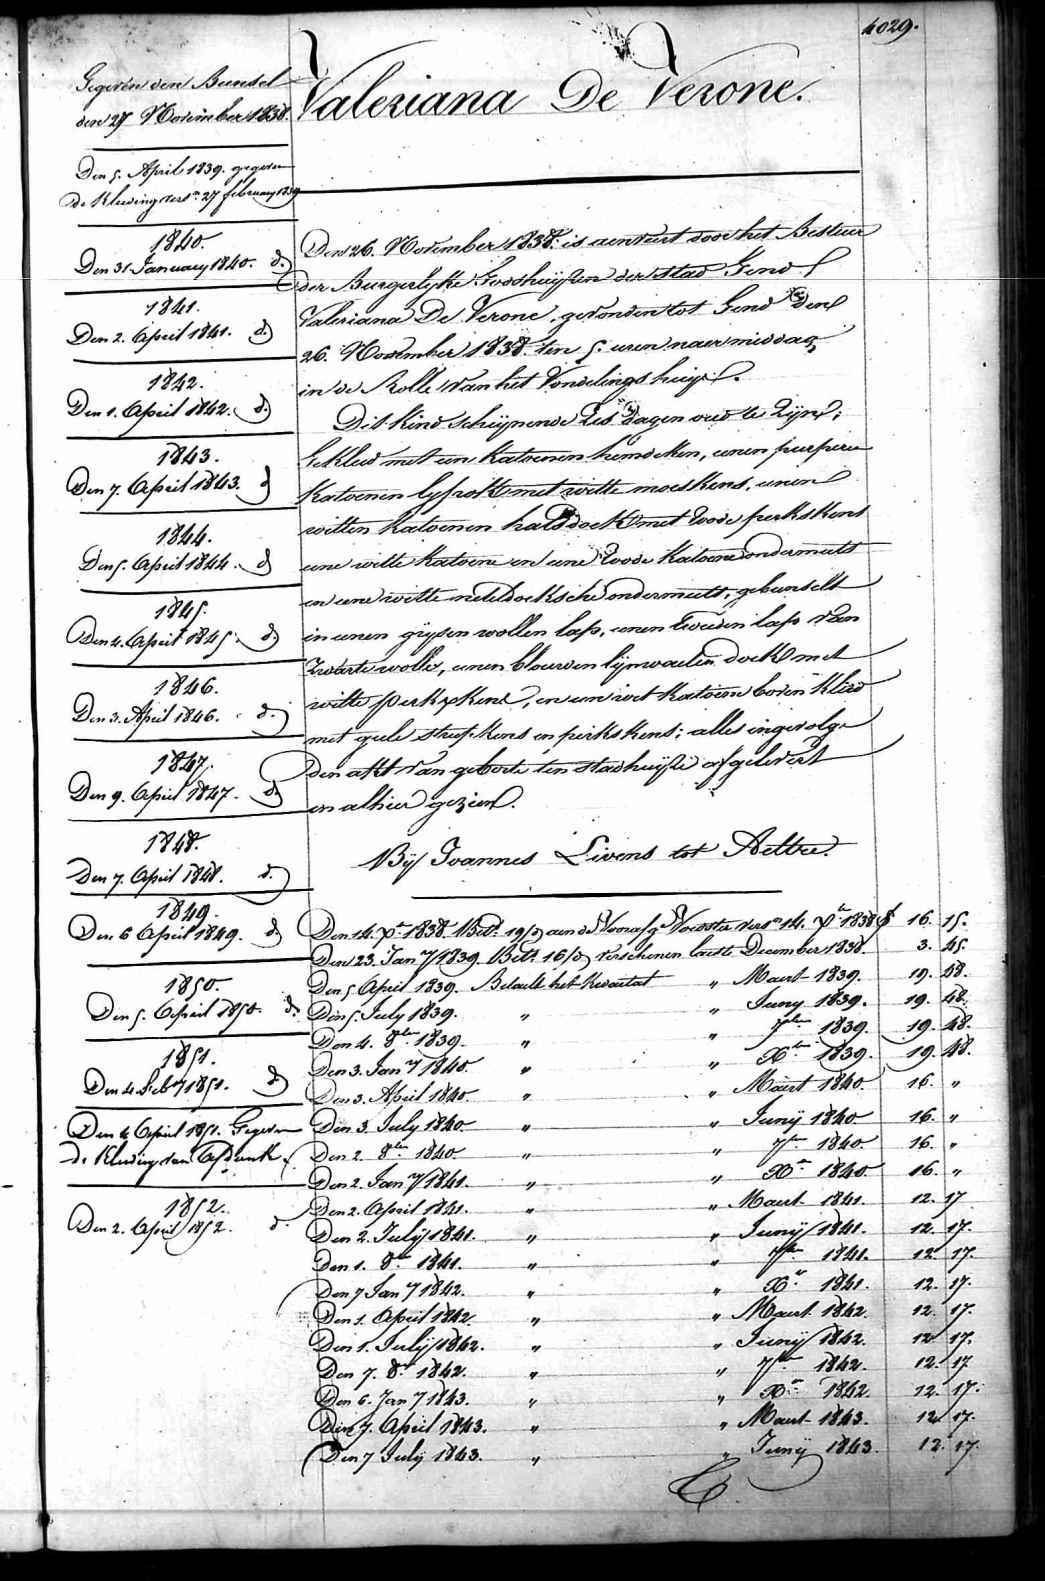 4029.
Valeriana De Verone.
Gegeven den Bundel
den 27 November 1838.
Den 5. April 1839. gegeven
de Kleeding verst. 27 february 1839
1840.
Den 31 January 1840. d.
1841.
Den 2. April 1841. d.
1842.
Den 1. April 1842. d.
1843.
Den 7. April 1843. d
1844.
Den 5. April 1844. d
1845.
Den 4. April 1845. d.
1846.
Den 3. April 1846. d.
1847.
Den 9. April 1847. d.
1848.
Den 7. April 1848. d.
1849.
Den 6 April 1849. d.
1850.
Den 5. April 1850. d.
1851.
Den 4 Feb.y 1851. d
Den 4 April 1851. Gegeven
de Kleeding van
1852.
Den 2. April 1852. d.
Den 26. November 1838. is aenveirt door het Bestuer
der Burgerlyke Godshuyzen der stad Gend
Valeriana De Verone, gevonden tot Gend den
26. November 1838. ten 5. uren naer middag
in de Rolle van het Vondelingshuys.
Dit kind schynende zes dagen oud te zyn,
Gekleed met een katoenen hemdeken, eenen purperen
katoenen lyfrok met witte moeskens, eenen
witten katoenen halsdoek met roode perkskens
eene witte katoene en eene roode katoene ondermuts
en eene witte neteldoeksche ondermuts, gebunselt
in eenen grysen wollen lap, eenen tweeden lap van
zwarte wolle, eenen blauwen lynwaeten doek met
witte perkskens, en een wit katoene boven kleed
met geele streepkens en perkskens; alles ingevolge
den akt van geboorte ten stadhuyze afgelevert
en alhier gezien.
By Joannes Livens tot Aeltre.
Den 14. Xr 1838. Bet. 19/ aen de Voorafg Voedster vers. 14. Xr 1838 f 16. 15.
Den 23. Jan.y 1839. Bet. 16/ verschenen laeste December 1838. 3. 45.
Den 5 April 1839. Betaelt het kwartael " Maert 1839. 19. 48.
Den 5. July 1839. " " Juny 1839. 19. 48.
Den 4. 8ber 1839. " " 7ber 1839. 19. 48.
Den 3. Jan.y 1840. " " Xber 1839. 19. 48.
Den 3. April 1840. " " Maert 1840. 16. "
Den 3. July 1840. " " Juny 1840. 16. "
Den 2. 8ber 1840. " " 7ber 1840. 16. "
Den 2. Jan.y 1841. " " Xr 1840. 16. "
Den 2. April 1841. " " Maert 1841. 12. 17
Den 2. July 1841. " " Juny 1841. 12. 17.
Den 1. 8ber 1841. " " 7ber 1841. 12 17.
Den 7 Jan.y 1842. " " Xr 1841. 12. 17.
Den 1. April 1842. " " Maert 1842. 12. 17.
Den 1. July 1842. " " Juny 1842. 12 17.
Den 7. 8r 1842. " " 7ber 1842. 12. 17
Den 6. Jan.y 1843. " " Xr 1842. 12. 17.
Den 7. April 1843. " " Maert 1843. 12. 17.
Den 7 July 1843. " " Juny 1843. 12. 17.